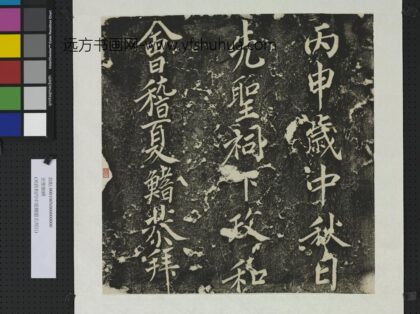 丙申歲中秋日
先聖祠下政和
會稽夏鰭恭拜
远方书画网--www.yfshuhua.com